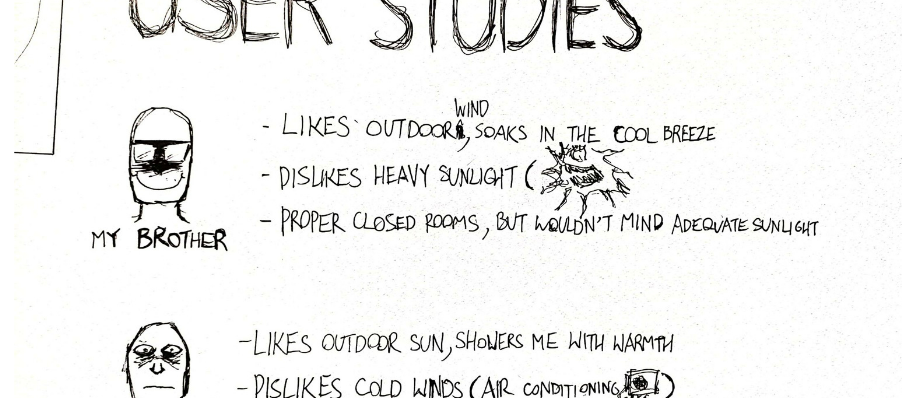 USER STUDIES
- LIKES OUTDOOR WIND, SOAKS IN THE COOL BREEZE
- DISLIKES HEAVY SUNLIGHT (
- PROPER CLOSED ROOMS, BUT WOULDN'T MIND ADEQUATE SUNLIGHT
MY BROTHER
- LIKES OUTDOOR SUN, SHOWERS ME WITH WARMTH
- DISLIKES COLD WINDS (AIR CONDITIONING )